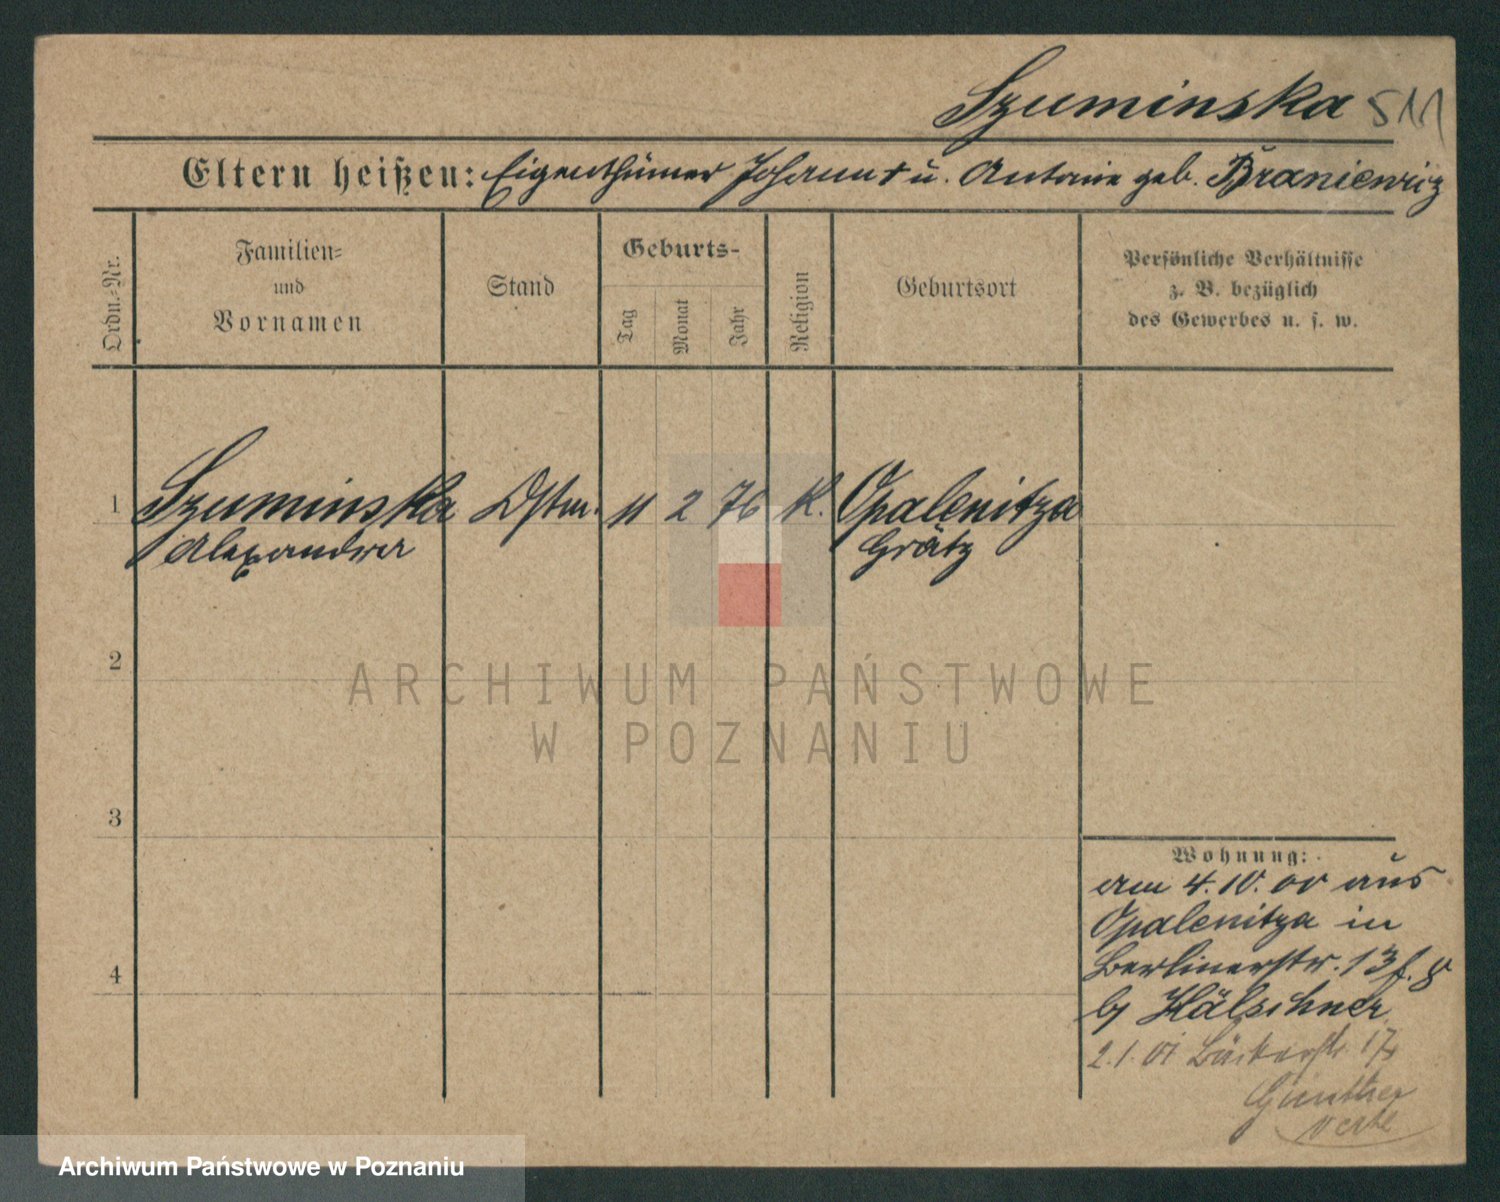 Szuminska 511
Eltern heißen: Eigenthümer Johann † u. Antonie geb. Braniewicz
Ordn.-Nr.
Familien-
und
Vornamen
Stand
Geburts-
Tag
Monat
Jahr
Religion
Geburtsort
Persönliche Verhältnisse
z. B. bezüglich
des Gewerbes u. s. w.
1 Szuminska 11 2 76 K. Opalenitza
Alexandra Grätz
2
ARCHIWUM PAŃSTWOWE
W POZNANIU
3
Wohnung:
am 4.10.00 aus
Opalenitza in
Berlinerstr. 13
4
b/ Hälschner
2.1.01 Bäckerstr. 17
Günther
Archiwum Państwowe w Poznaniu